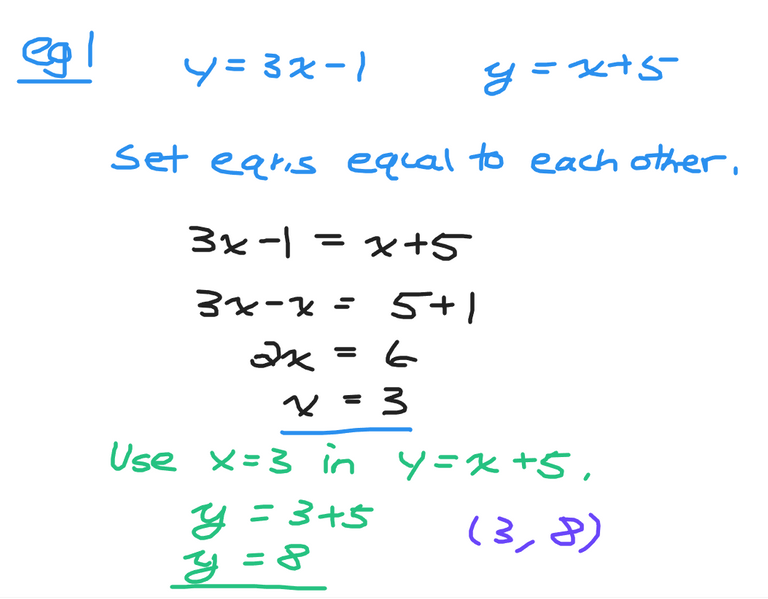 eg 1 y = 3x - 1 y = x + 5
Set eqn.s equal to each other.
3x - 1 = x + 5
3x - x = 5 + 1
2x = 6
x = 3
Use x = 3 in y = x + 5.
y = 3 + 5
(3, 8)
y = 8